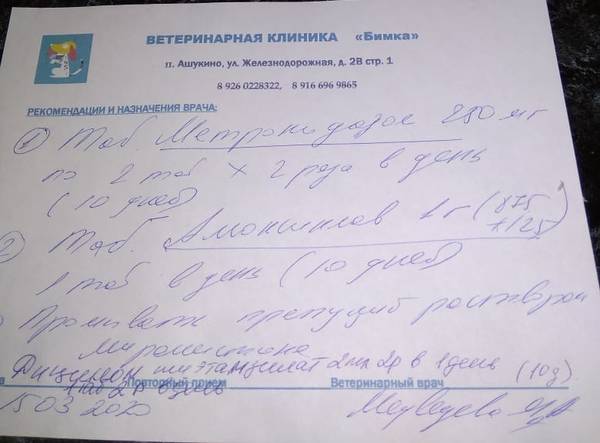 ВЕТЕРИНАРНАЯ КЛИНИКА «Бимка»
п. Ашукино, ул. Железнодорожная, д. 2В стр. 1
8 926 0228322, 8 916 696 9865
РЕКОМЕНДАЦИИ И НАЗНАЧЕНИЯ ВРАЧА:
1) Таб. Метронидазол 250 мг
по 2 таб х 2 раза в день
(10 дней)
2) Таб. Амоксиклав 1 г (875
+125)
1 таб в день (10 дней)
Промывать препуций раствором
мирамистина
Дицинон или этамзилат 2 мл 2р в 1 день (10д.)
Повторный прием Ветеринарный врач
15 03 2020 Медведева